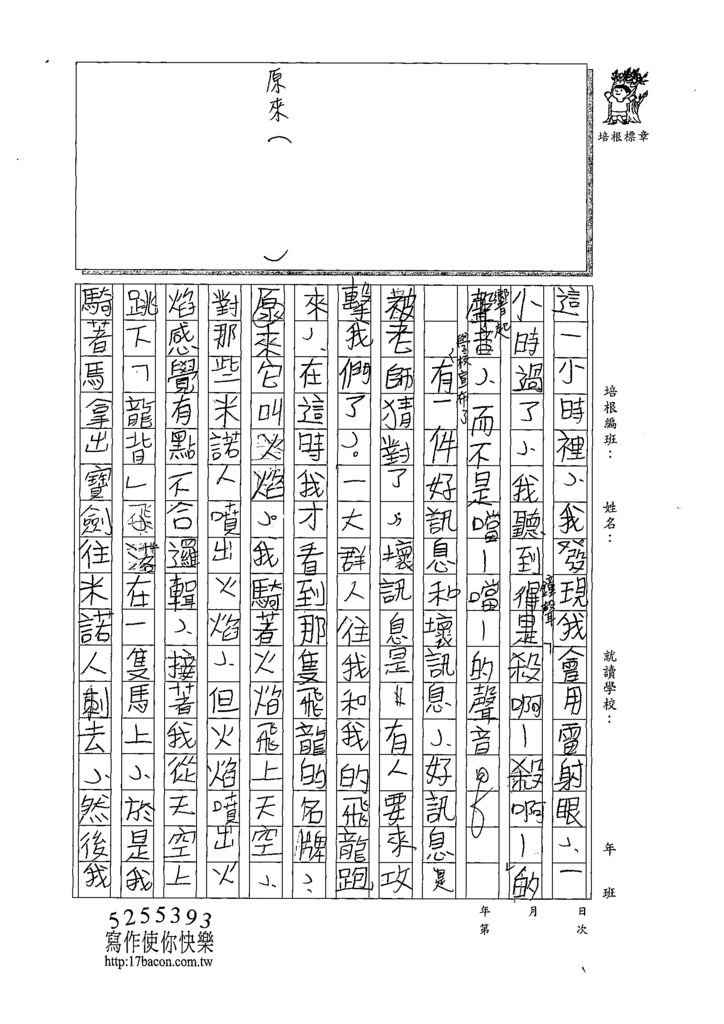 培根標章
原來（　　）
培根編班：　姓名：　就讀學校：　年　班
年　月　日
第　次
這一小時裡，我發現我會用雷射眼，一
小時過了，我聽到鐘聲是「殺啊—殺啊—」的
聲音響起，而不是噹—噹—的聲音。
學校宣布了有一件好訊息和壞訊息，好訊息是
被老師猜對了，壞訊息是：有人要來攻
擊我們了。一大群人往我和我的飛龍跑
來，在這時我才看到那隻飛龍的名牌，
原來它叫火焰。我騎著火焰飛上天空，
對那些米諾人噴出火焰，但火焰噴出火
焰感覺有點不合邏輯，接著我從天空上
跳下「龍背」飛落在一隻馬上，於是我
騎著馬拿出寶劍往米諾人刺去，然後我
5255393
寫作使你快樂
http:17bacon.com.tw